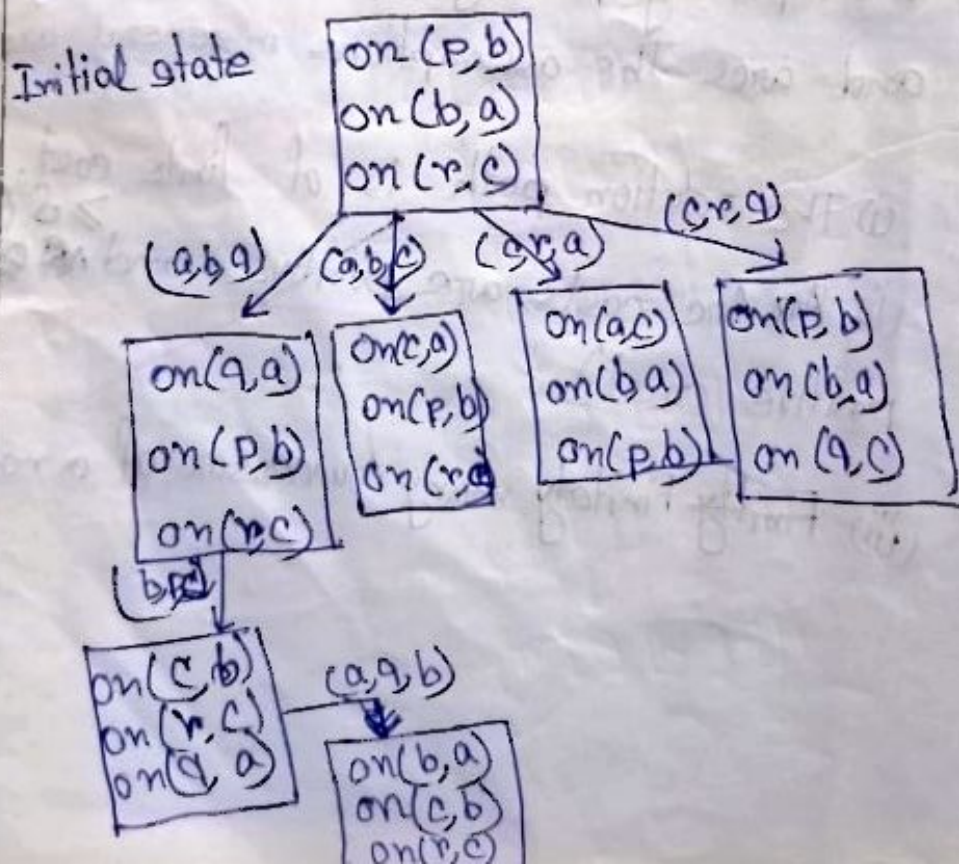 Initial state
on (P, b)
on (b, a)
on (r, c)
(a,b,q)
(a,b,c)
(c,r,a)
(c,r,q)
on(q,a)
on(P,b)
on(r,c)
on(c,a)
on(p,b)
on(r,
on(a,c)
on(b,a)
on(p,b)
on(P, b)
on(b,a)
on (q, c)
on(c,b)
on(r,c)
on(q, a)
(a,q,b)
on(b,a)
on(c,b)
on(r,c)